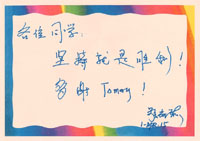 各位同学:
坚持就是胜利!
多谢 Tommy!